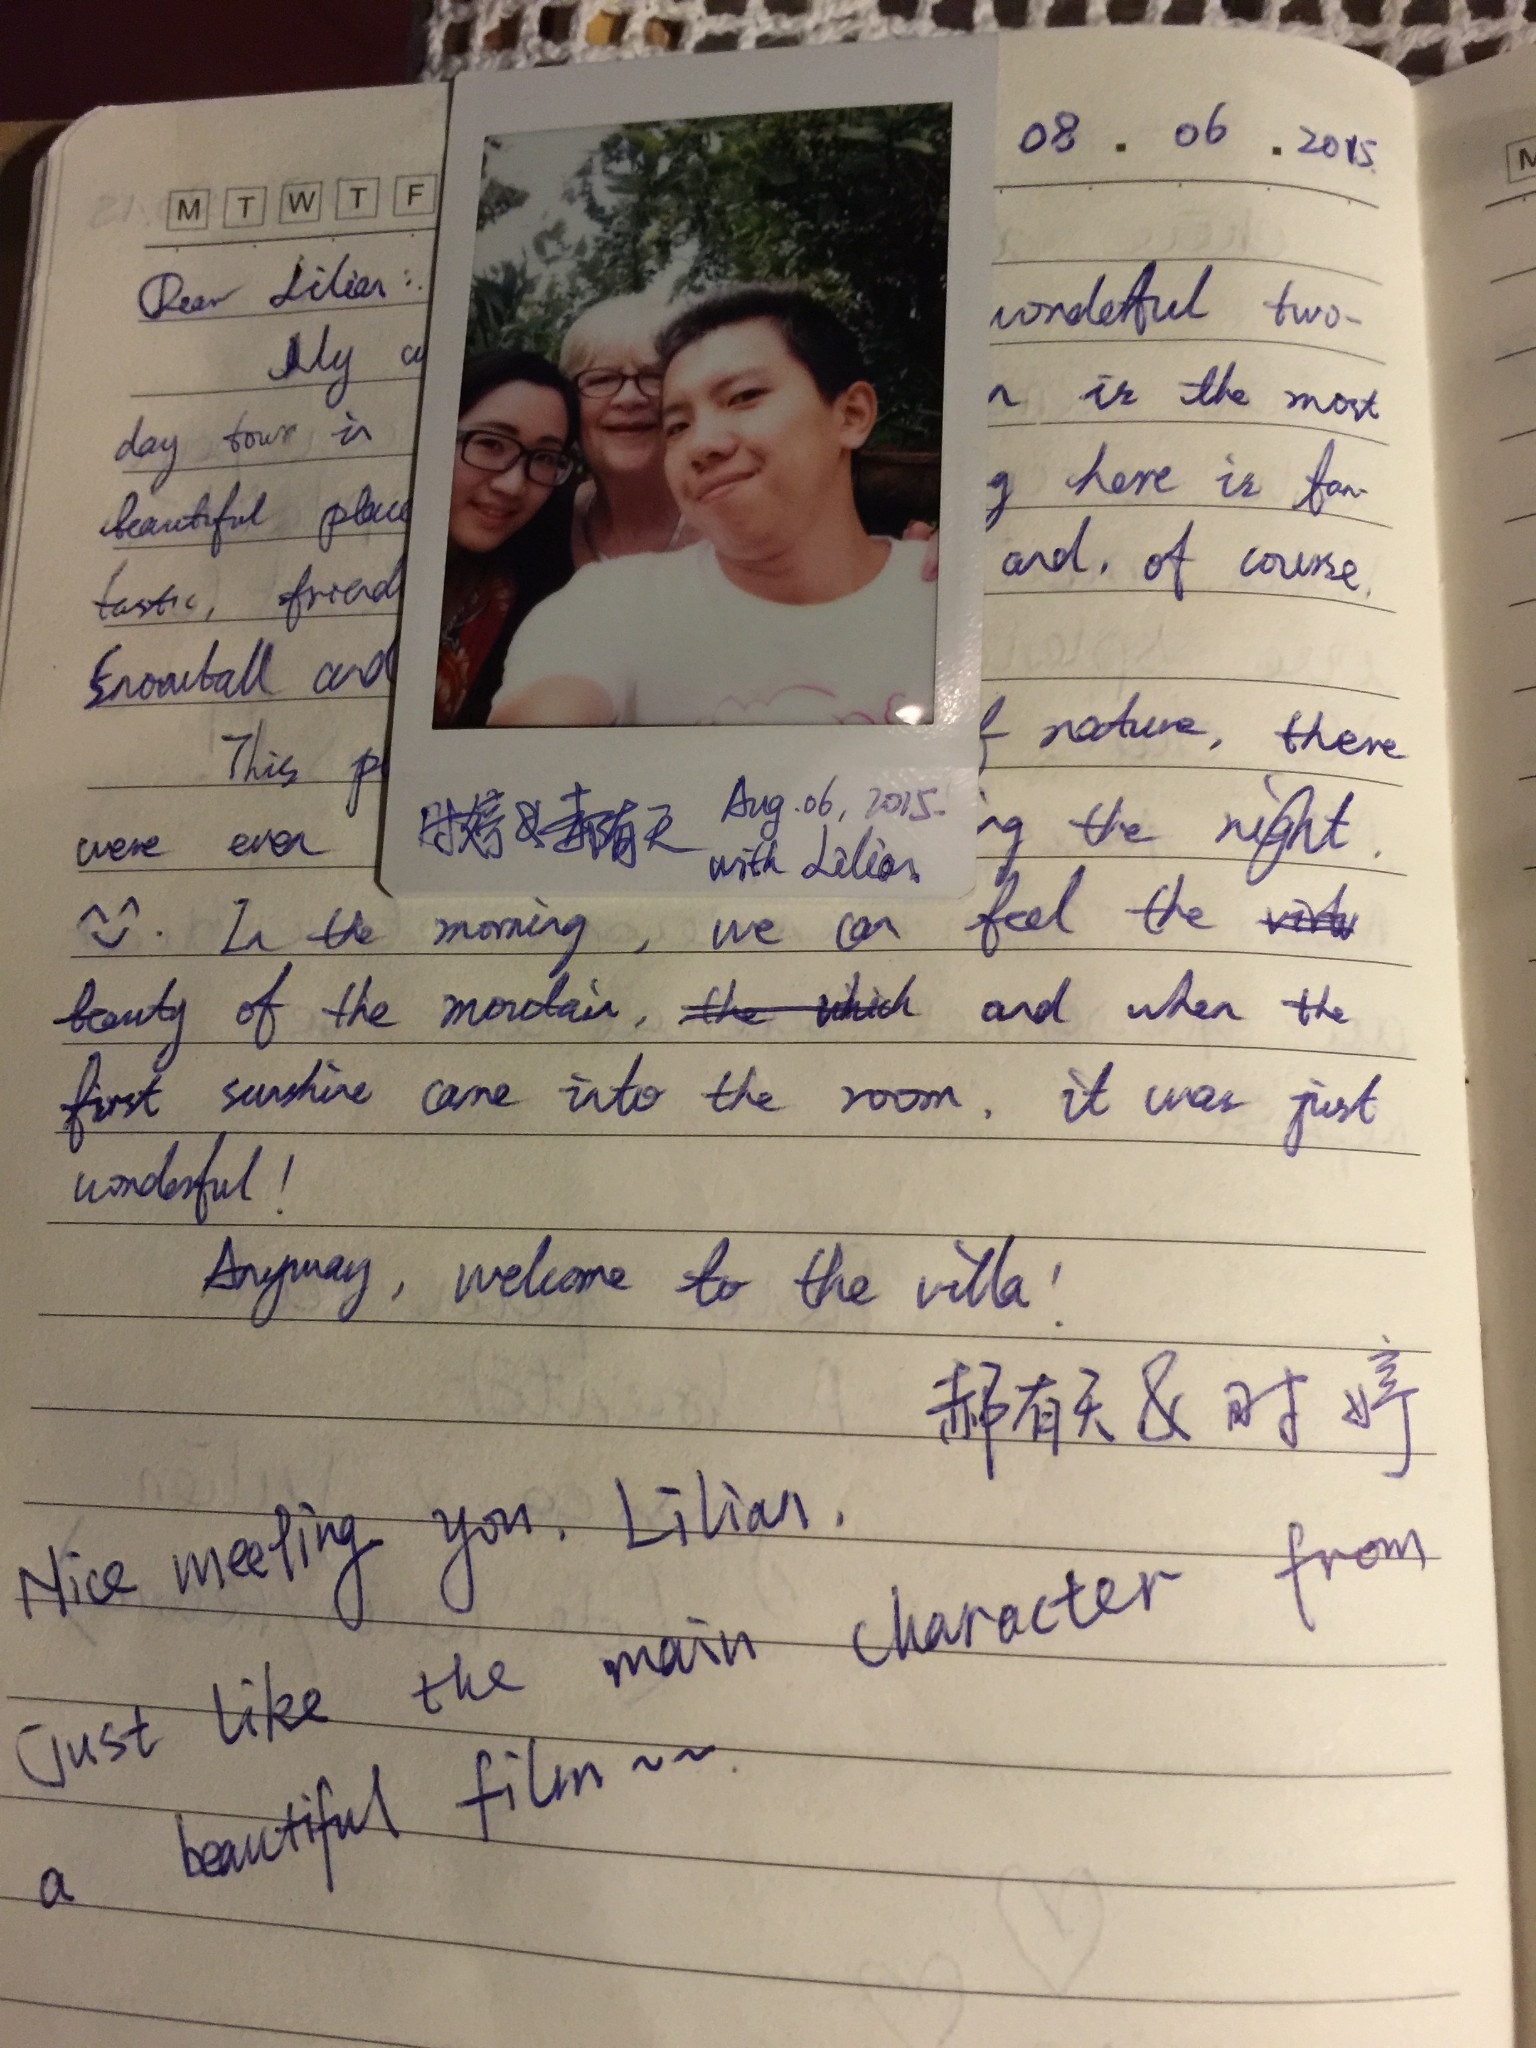 08 . 06 . 2015
M T W T F
Dear Lilian:
My wonderful two-
day tour in is the most
beautiful place here is fan-
tastic, friend and, of course,
Snowball and
This of nature, there
were even the night.
^^. In the morning, we can feel the
beauty of the mountain, the which and when the
first sunshine came into the room, it was just
wonderful!
Anyway, welcome to the villa!
郝有天 & 时婷
Nice meeting you, Lilian.
Just like the main character from
a beautiful film~~.
时婷 & 郝有天 Aug.06, 2015.
with Lilian
M